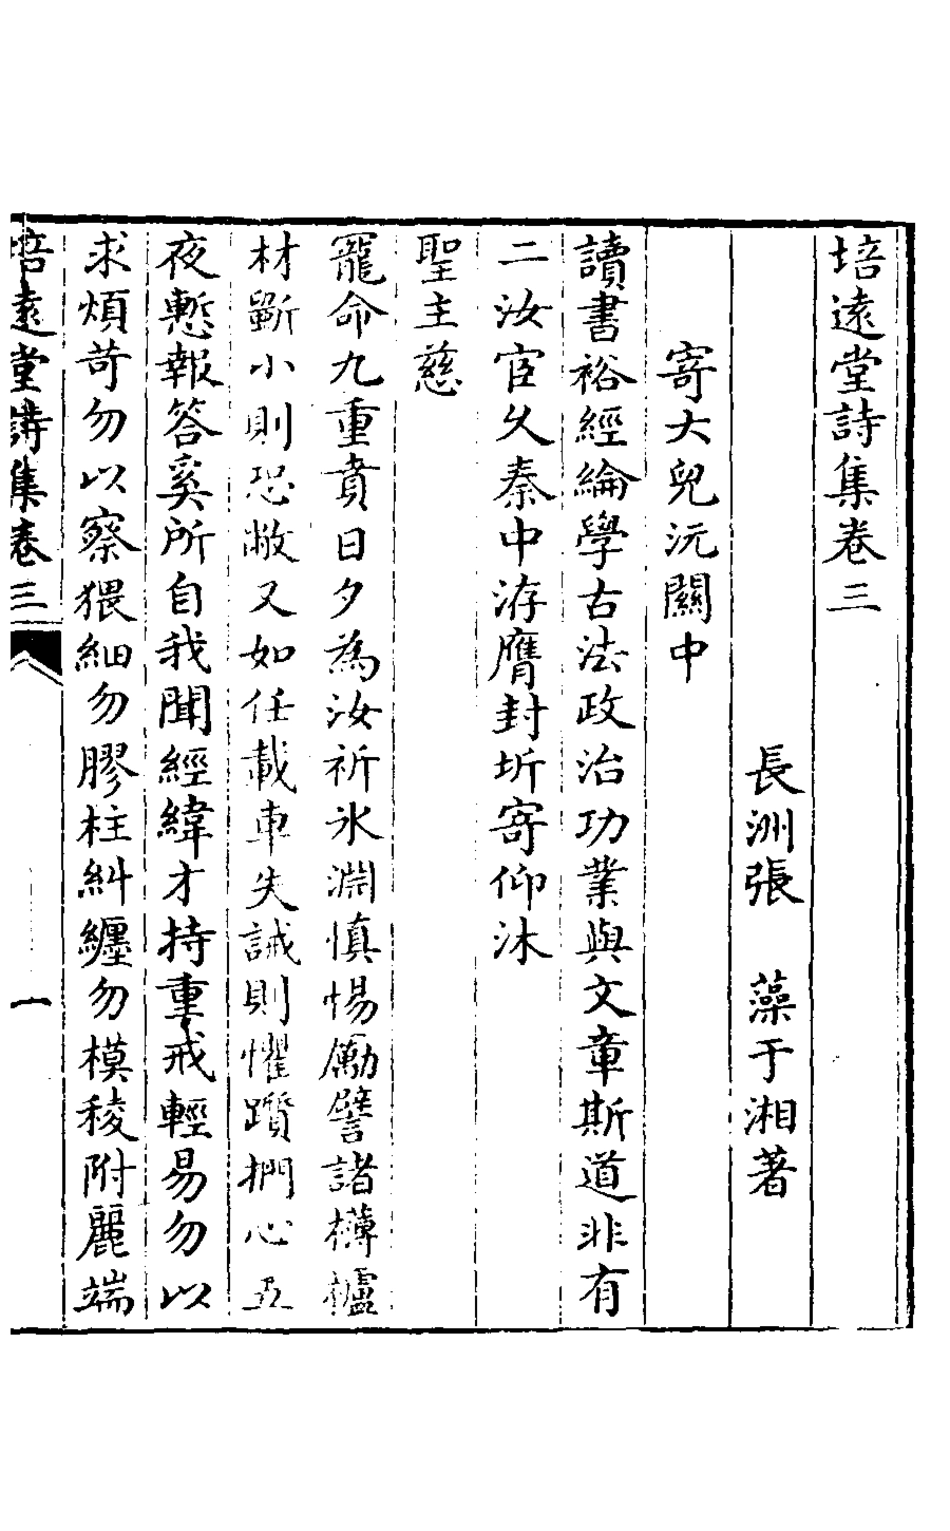 培遠堂詩集卷三
長洲張　藻于湘著
寄大兒沅關中
讀書裕經綸學古法政治功業與文章斯道非有
二汝宦久秦中洊膺封圻寄仰沐
聖主慈
寵命九重賁日夕為汝祈氷淵慎惕勵譬諸欂櫨
材斲小則恐敝又如任載車失誡則懼躓捫心五
夜慙報答奚所自我聞經緯才持重戒輕易勿以
求煩苛勿以察猥細勿膠柱糾纏勿模稜附麗端
培遠堂詩集卷三　一